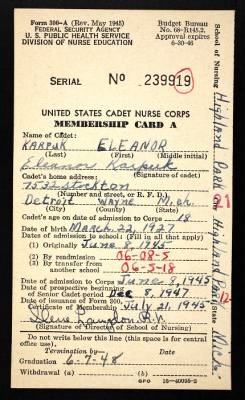 Form 300-A (Rev. May 1945)
FEDERAL SECURITY AGENCY
U. S. PUBLIC HEALTH SERVICE
DIVISION OF NURSE EDUCATION
Budget Bureau
No. 68-R145.2.
Approval expires
6-30-46
SERIAL No 239919
UNITED STATES CADET NURSE CORPS
MEMBERSHIP CARD A
Name of Cadet:
KARPUK ELEANOR
(Last) (First) (Middle initial)
Eleanor Karpuk
Cadet's home address: (Signature of cadet)
7532 Stockton
(Number and street, or R. F. D.)
Detroit WAYNE Mich.
(City) (County) (State)
Cadet's age on date of admission to Corps 18
Date of birth March 22, 1927
Dates of admission to school: (Fill in all that apply)
(1) Originally June 8, 1945
(2) By readmission 06-08-5
(3) By transfer from another school 06-5-18
Date of admission to Corps June 8, 1945
Date of prospective beginning of Senior Cadet period Dec 8, 1947
Date of issuance of Form 300, Certificate of Membership July 21, 1945
R.N.
(Signature of Director of School of Nursing)
Do not write below this line (this space for central office use).
Termination by— Date
Graduation 6-7-48
GPO 16—40095-2
School of Nursing Highland Park Gen Highland Park State Mich.
21
12